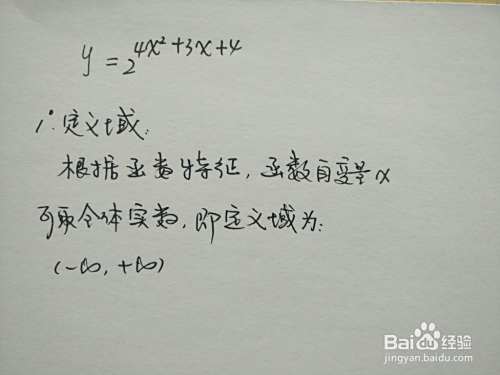 y = 2^{4x²+3x+4}
1°. 定义域:
根据函数特征, 函数自变量x
可取全体实数, 即定义域为:
(-∞, +∞)
Baidu经验
jingyan.baidu.com